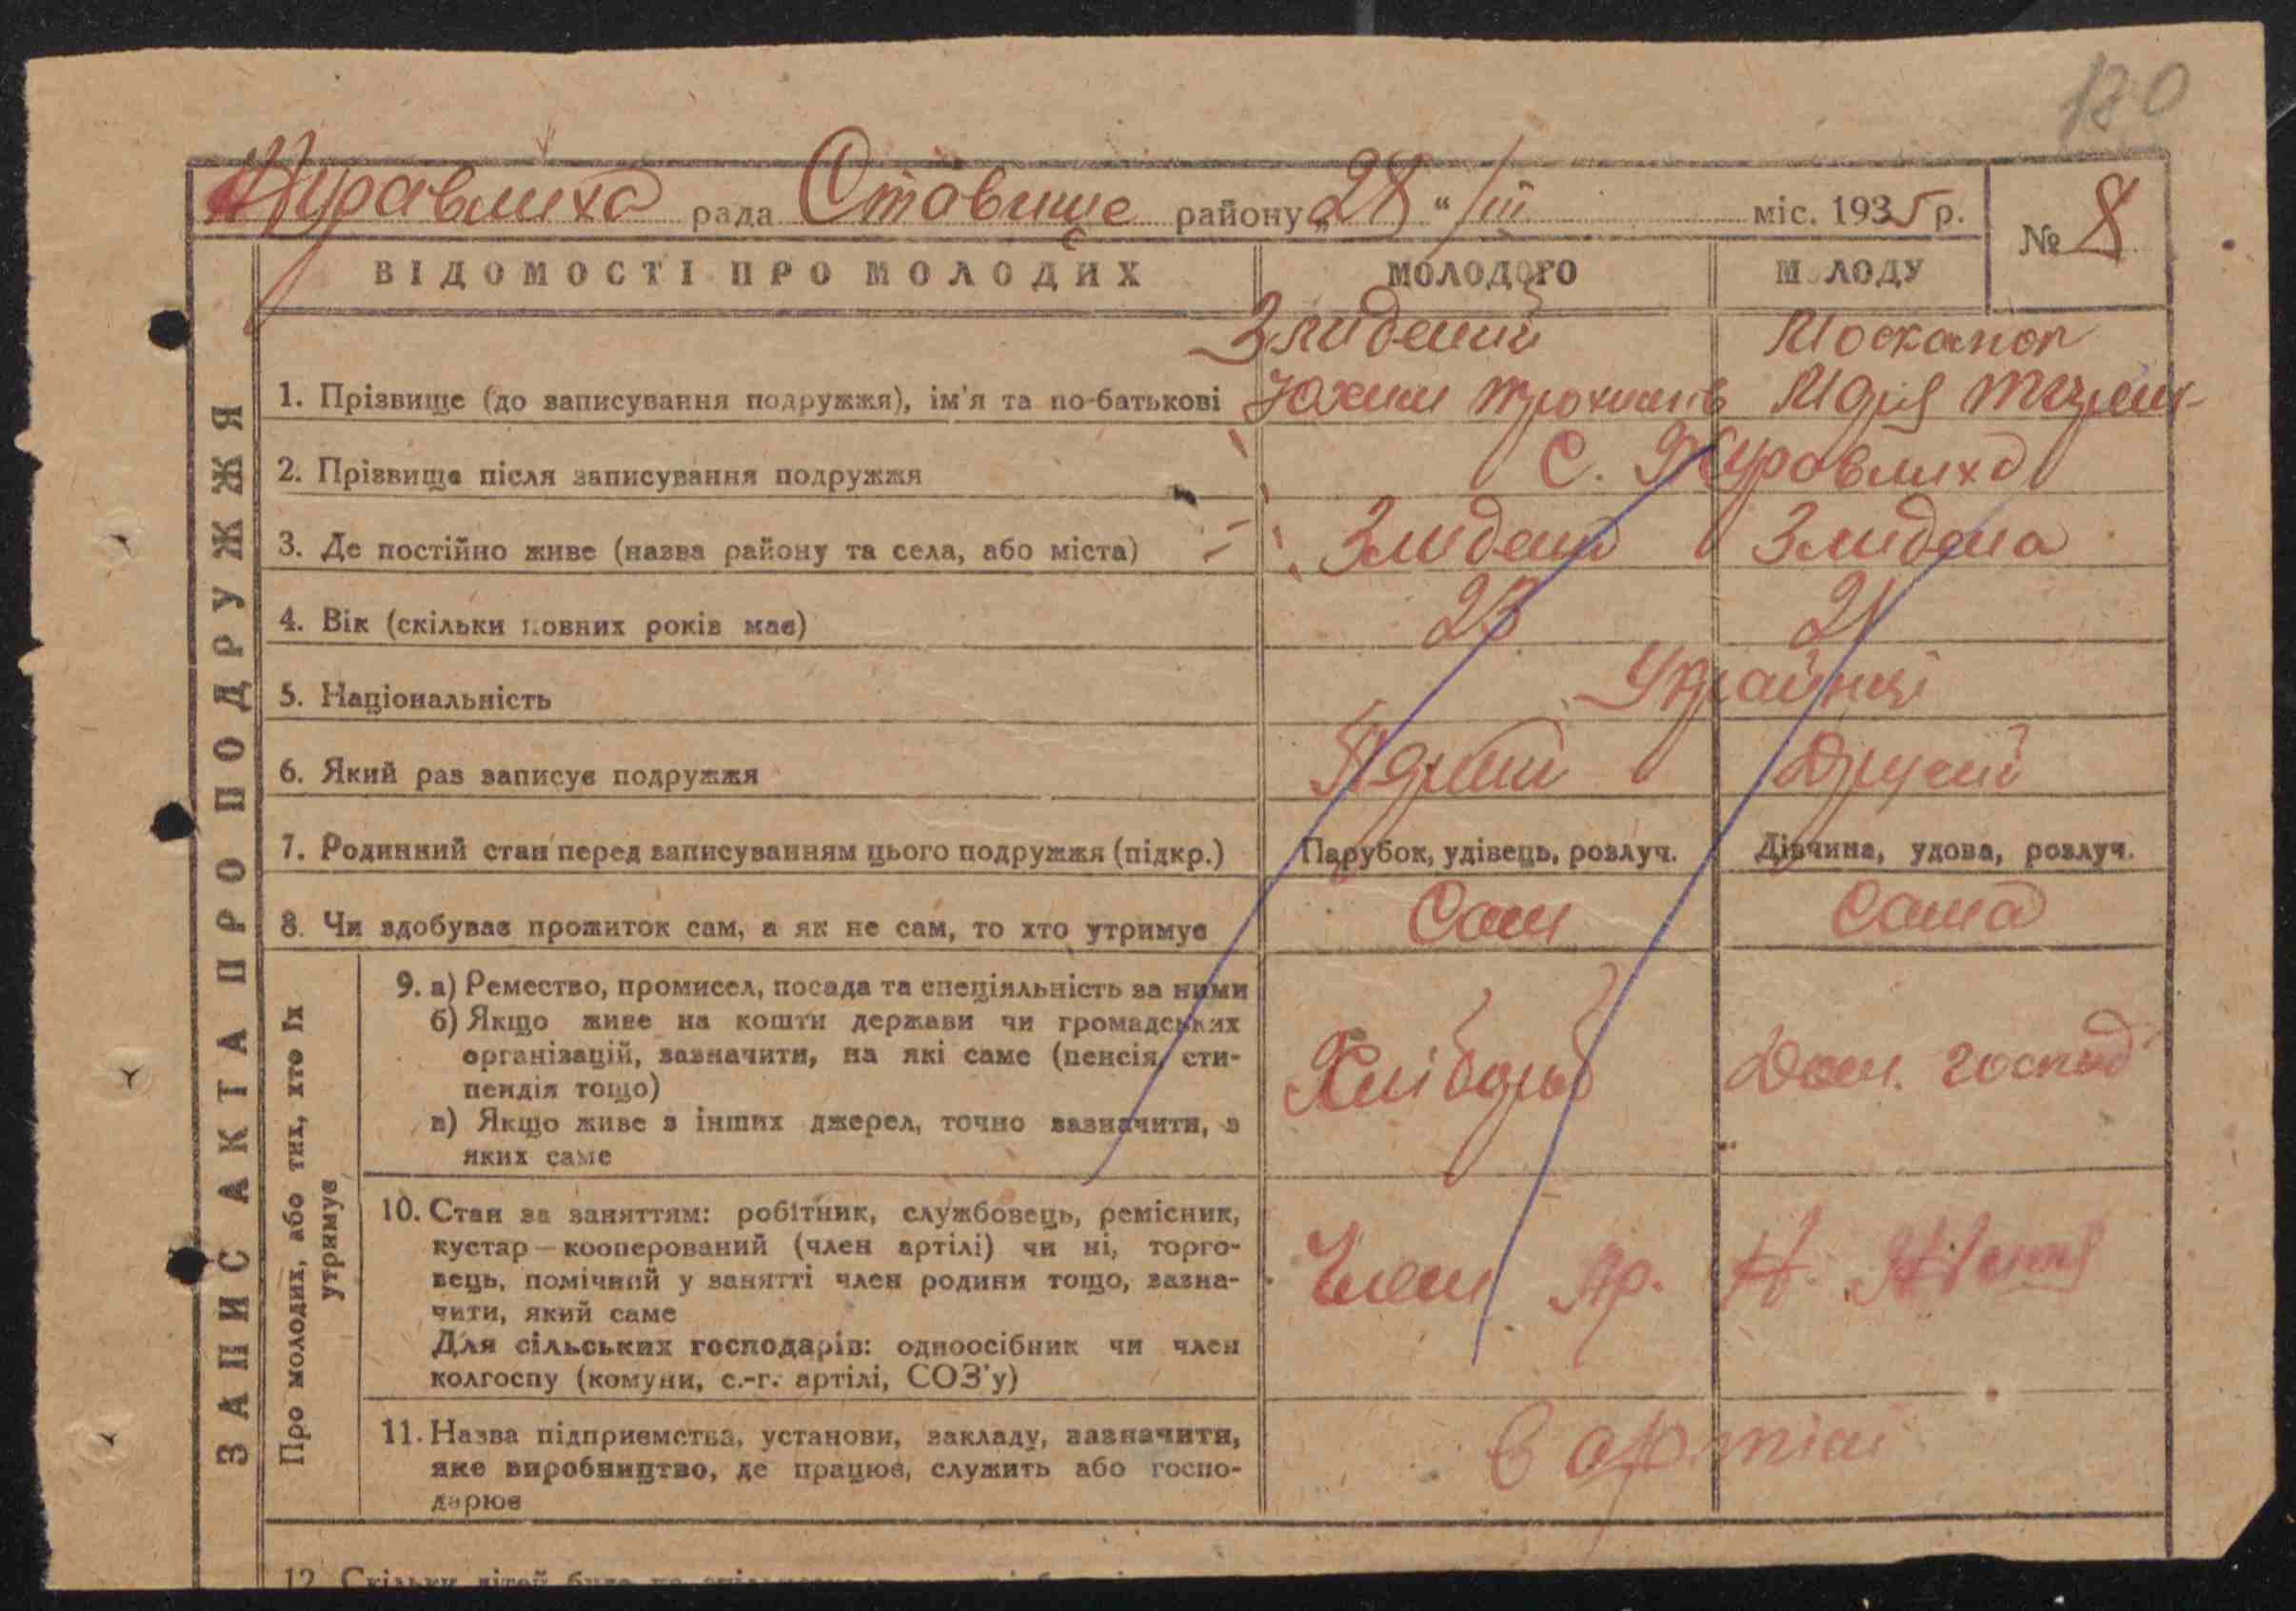 180
Журавлиха рада Ставище району „28“ III міс. 1935 р.
№ 8
ВІДОМОСТІ ПРО МОЛОДИХ
МОЛОДОГО
М ЛОДУ
ЗАПИС АКТА ПРО ПОДРУЖЖЯ
1. Прізвище (до записування подружжя), ім'я та по-батькові
Злидений
Юхим Трохимів
Марія
2. Прізвище після записування подружжя
С. Журавлиха
3. Де постійно живе (назва району та села, або міста)
Злидений
Злидена
4. Вік (скільки повних років має)
23
21
5. Національність
Українці
6. Який раз записує подружжя
Перший
Другий
7. Родинний стан перед записуванням цього подружжя (підкр.)
Парубок, удівець, розлуч.
Дівчина, удова, розлуч.
8. Чи здобуває прожиток сам, а як не сам, то хто утримує
Сам
Сама
Про молодих, або тих, хто їх
утримує
9. а) Ремество, промисел, посада та спеціяльність за ними
б) Якщо живе на кошти держави чи громадських
організацій, зазначити, на які саме (пенсія, сти-
пендія тощо)
в) Якщо живе з інших джерел, точно зазначити, з
яких саме
Хлібороб
Дом. господ
10. Стан за заняттям: робітник, службовець, ремісник,
кустар — кооперований (член артілі) чи ні, торго-
вець, помічний у занятті член родини тощо, зазна-
чити, який саме
Для сільських господарів: одноосібник чи член
колгоспу (комуни, с.-г. артілі, СОЗ'у)
Член Ар.
11. Назва підприємства, установи, закладу, зазначити,
яке виробництво, де працює, служить або госпо-
дарює
в артілі
12. Скільки дітей було